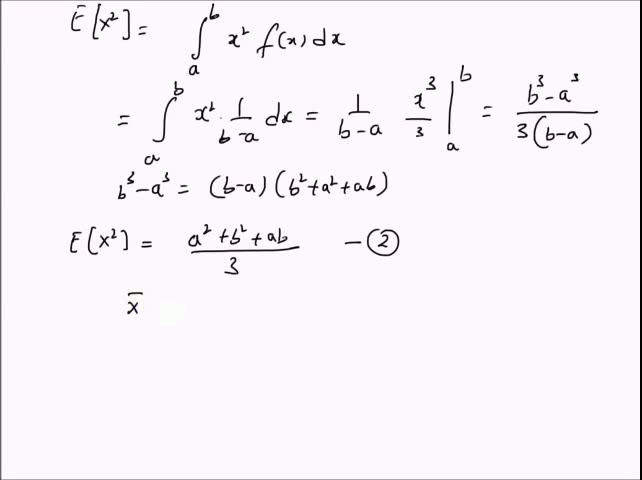 E[x²] = ∫ₐᵇ x² f(x) dx
= ∫ₐᵇ x² · 1/(b-a) dx = 1/(b-a) x³/3 |ₐᵇ = (b³-a³)/(3(b-a))
b³-a³ = (b-a) (b²+a²+ab)
E[x²] = (a²+b²+ab)/3 - ②
x̅